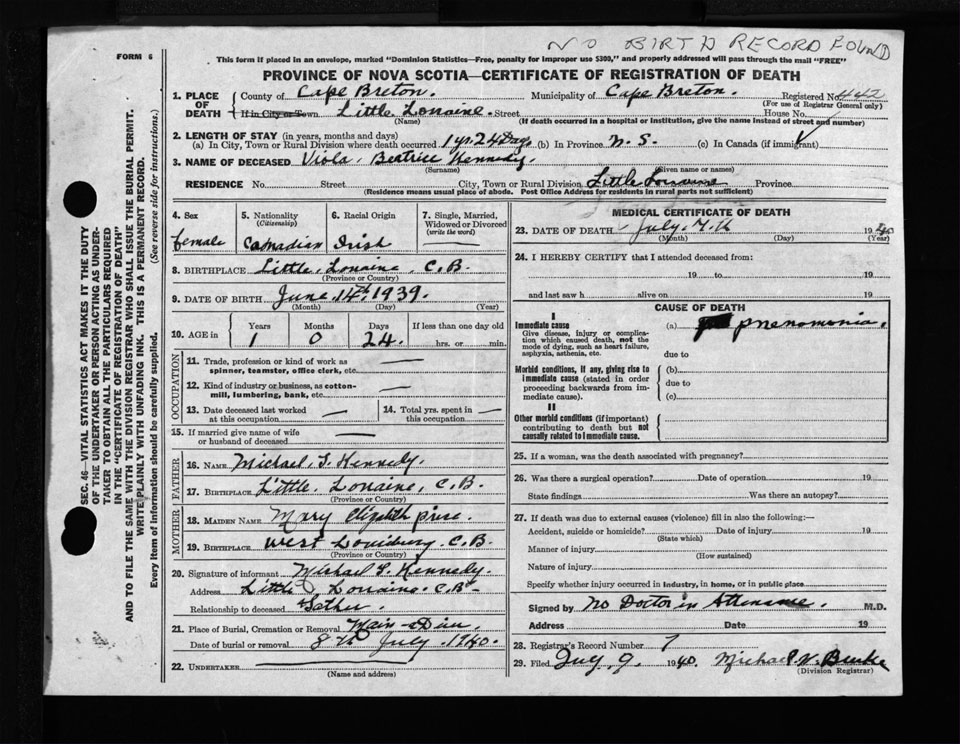 NO BIRTH RECORD FOUND
FORM 6
This form if placed in an envelope, marked "Dominion Statistics—Free, penalty for improper use $300," and properly addressed will pass through the mail "FREE"
PROVINCE OF NOVA SCOTIA—CERTIFICATE OF REGISTRATION OF DEATH
1. PLACE OF DEATH County of Cape Breton. Municipality of Cape Breton. Registered No. 442
(For use of Registrar General only)
If in City or Town Little Lorraine. Street House No.
(Name) (If death occurred in a hospital or institution, give the name instead of street and number)
2. LENGTH OF STAY (in years, months and days)
(a) In City, Town or Rural Division where death occurred 1 yr. 24 Days (b) In Province N. S. (c) In Canada (if immigrant)
3. NAME OF DECEASED Viola, Beatrice Kennedy.
(Surname) (Given name or names)
RESIDENCE No. Street City, Town or Rural Division Little Lorraine Province
(Residence means usual place of abode. Post Office Address for residents in rural parts not sufficient)
4. Sex
female
5. Nationality
(Citizenship)
Canadian
6. Racial Origin
Irish
7. Single, Married, Widowed or Divorced
(write the word)
8. BIRTHPLACE Little, Lorraine, C.B.
(Province or Country)
9. DATE OF BIRTH June 14th, 1939.
(Month) (Day) (Year)
10. AGE in Years Months Days If less than one day old
1 0 24. hrs. or min.
OCCUPATION
11. Trade, profession or kind of work as
spinner, teamster, office clerk, etc. —
12. Kind of industry or business, as cotton-
mill, lumbering, bank, etc. —
13. Date deceased last worked
at this occupation —
14. Total yrs. spent in
this occupation —
15. If married give name of wife
or husband of deceased —
FATHER
16. NAME Michael S. Kennedy.
17. BIRTHPLACE Little, Lorraine, C.B.
(Province or Country)
MOTHER
18. MAIDEN NAME Mary Elizabeth
19. BIRTHPLACE West Louisburg C.B.
(Province or Country)
20. Signature of informant Michael S. Kennedy.
Address Little Lorraine. C.B.
Relationship to deceased Father.
21. Place of Burial, Cremation or Removal Main-a-Dieu
Date of burial or removal 8th July, 1940.
22. UNDERTAKER
(Name and address)
MEDICAL CERTIFICATE OF DEATH
23. DATE OF DEATH July. 7th 1940
(Month) (Day) (Year)
24. I HEREBY CERTIFY that I attended deceased from:
19 to 19
and last saw h alive on 19
CAUSE OF DEATH
I
Immediate cause
Give disease, injury or complica-
tion which caused death, not the
mode of dying, such as heart failure,
asphyxia, asthenia, etc.
(a) pnenomonia.
due to
Morbid conditions, if any, giving rise to
immediate cause (stated in order
proceeding backwards from im-
mediate cause).
(b)
due to
(c)
II
Other morbid conditions (if important)
contributing to death but not
causally related to immediate cause.
25. If a woman, was the death associated with pregnancy?
26. Was there a surgical operation? Date of operation 19
State findings Was there an autopsy?
27. If death was due to external causes (violence) fill in also the following:—
Accident, suicide or homicide? Date of injury 19
(State which)
Manner of injury
(How sustained)
Nature of injury
Specify whether injury occurred in industry, in home, or in public place
Signed by No Doctor in M.D.
Address Date 19
28. Registrar's Record Number 7
29. Filed July 9 1940. Michael Burke
(Division Registrar)
SEC. 46—VITAL STATISTICS ACT MAKES IT THE DUTY
OF THE UNDERTAKER OR PERSON ACTING AS UNDER-
TAKER TO OBTAIN ALL THE PARTICULARS REQUIRED
IN THE "CERTIFICATE OF REGISTRATION OF DEATH"
AND TO FILE THE SAME WITH THE DIVISION REGISTRAR WHO SHALL ISSUE THE BURIAL PERMIT.
WRITE PLAINLY WITH UNFADING INK. THIS IS A PERMANENT RECORD.
Every item of information should be carefully supplied. (See reverse side for instructions.)